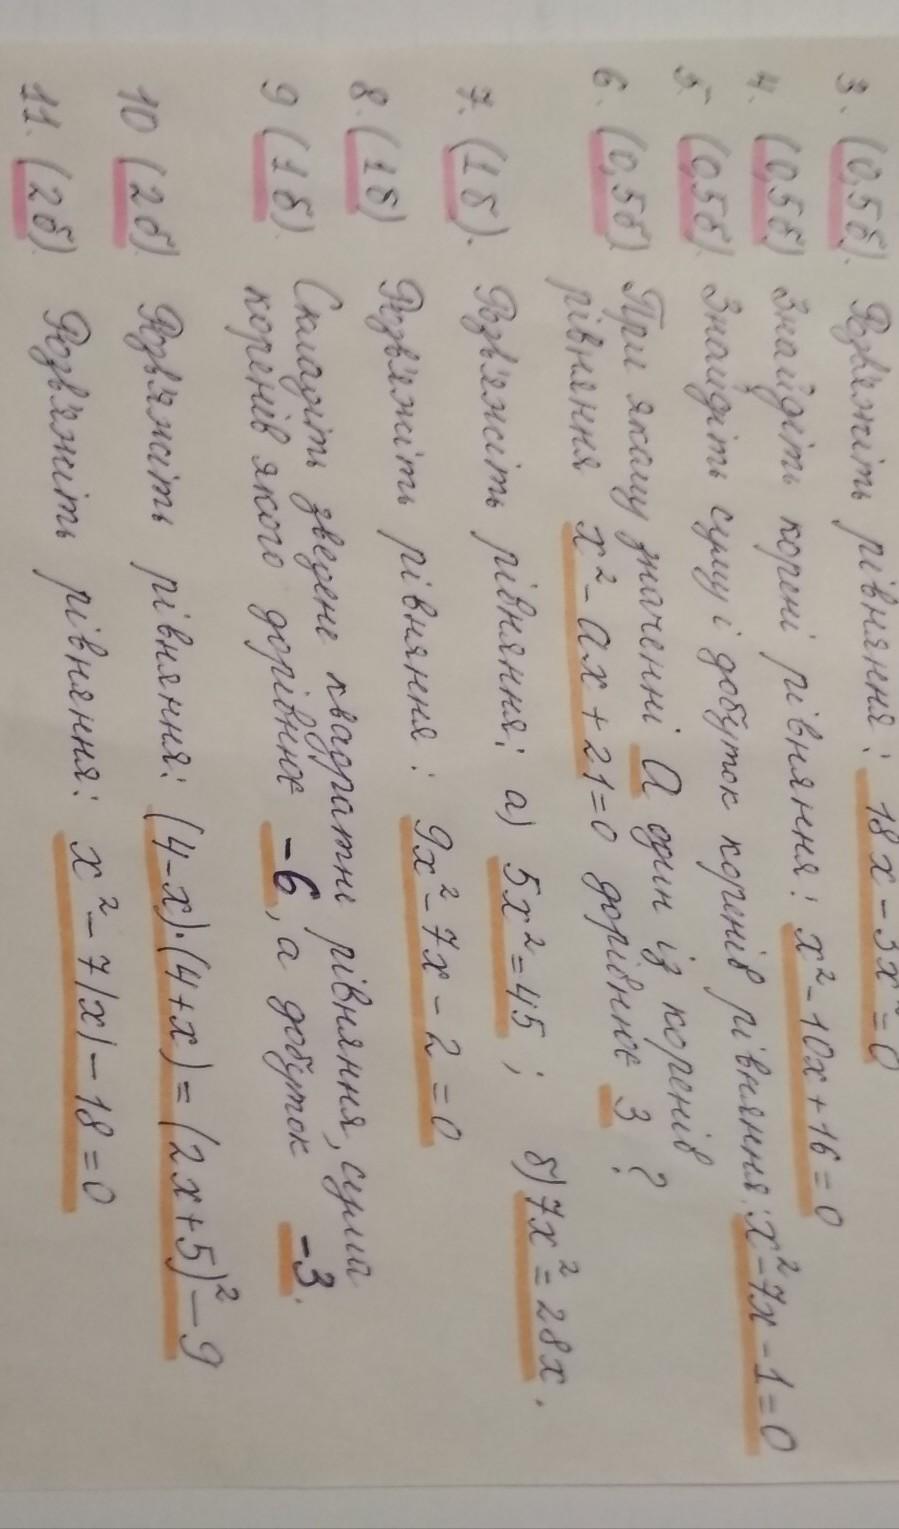 3. (0,5б). Розв'яжіть рівняння: 18x - 3x² = 0
4. (0,5б) Знайдіть корені рівняння: x² - 10x + 16 = 0
5. (0,5б) Знайдіть суму і добуток коренів рівняння: x² - 7x - 1 = 0
6. (0,5б) При якому значенні a один із коренів
рівняння x² - ax + 21 = 0 дорівнює 3 ?
7. (1б). Розв'яжіть рівняння: а) 5x² = 45 ; б) 7x² = 28x.
8. (1б) Розв'яжіть рівняння: 9x² - 7x - 2 = 0
9 (1б). Складіть зведене квадратне рівняння, сума
коренів якого дорівнює -6, а добуток -3.
10 (2б) Розв'яжіть рівняння: (4-x)·(4+x) = (2x+5)² - 9
11. (2б) Розв'яжіть рівняння: x² - 7|x| - 18 = 0